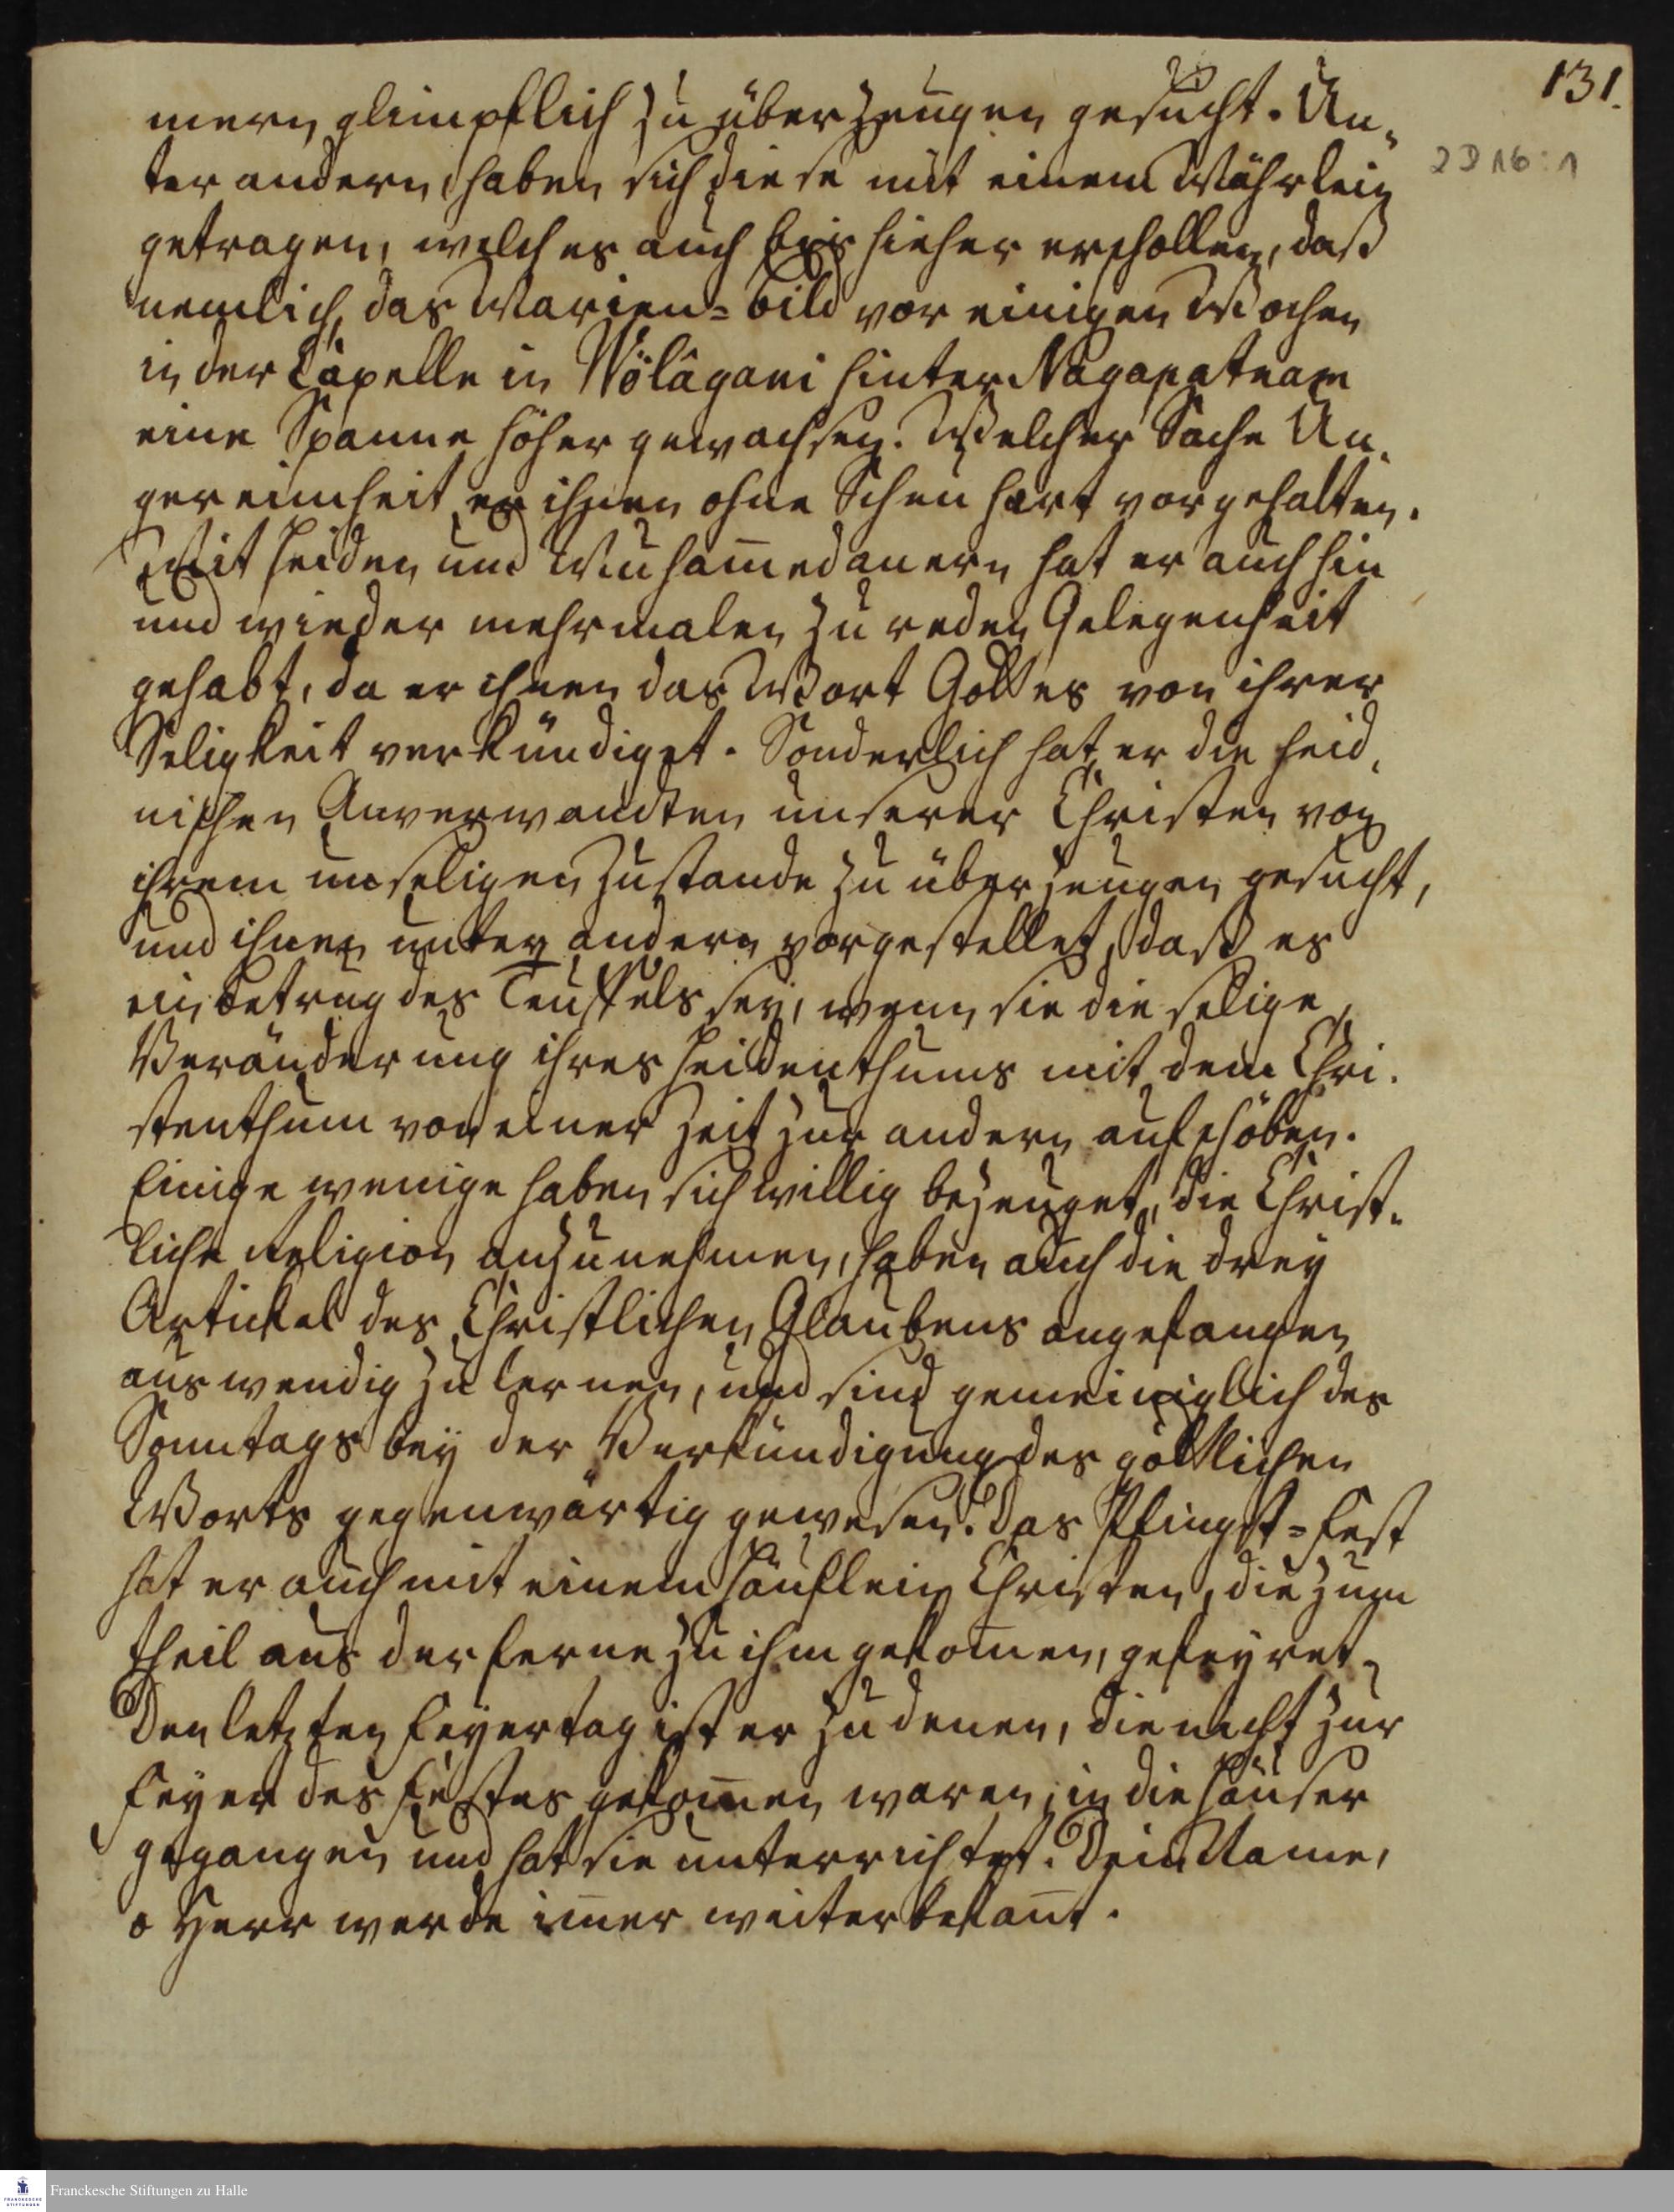 131.
2D 16:1
mern glimpflich zu überzeugen gesucht. Un-
ter andern haben sich diese mit einem Mährlein
getragen, welches auch bis hieher erschollen, daß
nemlich das Marien-Bild vor einigen Wochen
in der Capelle in Wölâgani hinter Nagapatnam
eine Spanne höher gewachsen. Welcher Sache Un-
gereimheit er ihnen ohne Scheu hart vorgehalten.
Mit Heiden und Muham̅edanern hat er auch hin
und wieder mehrmalen zu reden Gelegenheit
gehabt, da er ihnen das Wort Gottes von ihrer
Seligkeit verkündiget. Sonderlich hat er die heid-
nischen Anverwandten unserer Christen von
ihrem unseligen Zustande zu überzeugen gesucht,
und ihnen unter andern vorgestellet, daß es
ein Betrug des Teuffels sey, wenn sie die selige
Veränderung ihres Heidenthums mit dem Chri-
stenthum von einer Zeit zur andern aufschöben.
Einige wenige haben sich willig bezeuget, die Christ-
liche Religion anzunehmen, haben auch die drey
Artickel des Christlichen Glaubens angefangen
auswendig zu lernen, und sind gemeiniglich des
Sonntags bey der Verkündigung des göttlichen
Worts gegenwärtig gewesen. Das Pfingst-Fest
hat er auch mit einem Häuflein Christen, die zum
theil aus der Ferne zu ihm gekom̅en, gefeyret.
Den letzten Feyertag ist er zu denen, die nicht zur
Feyer des Festes gekom̅en waren, in die Häuser
gegangen und hat sie unterrichtet. Dein Name,
o Herr werde im̅er weiter bekan̅t.
Franckesche Stiftungen zu Halle
FRANCKESCHE
STIFTUNGEN